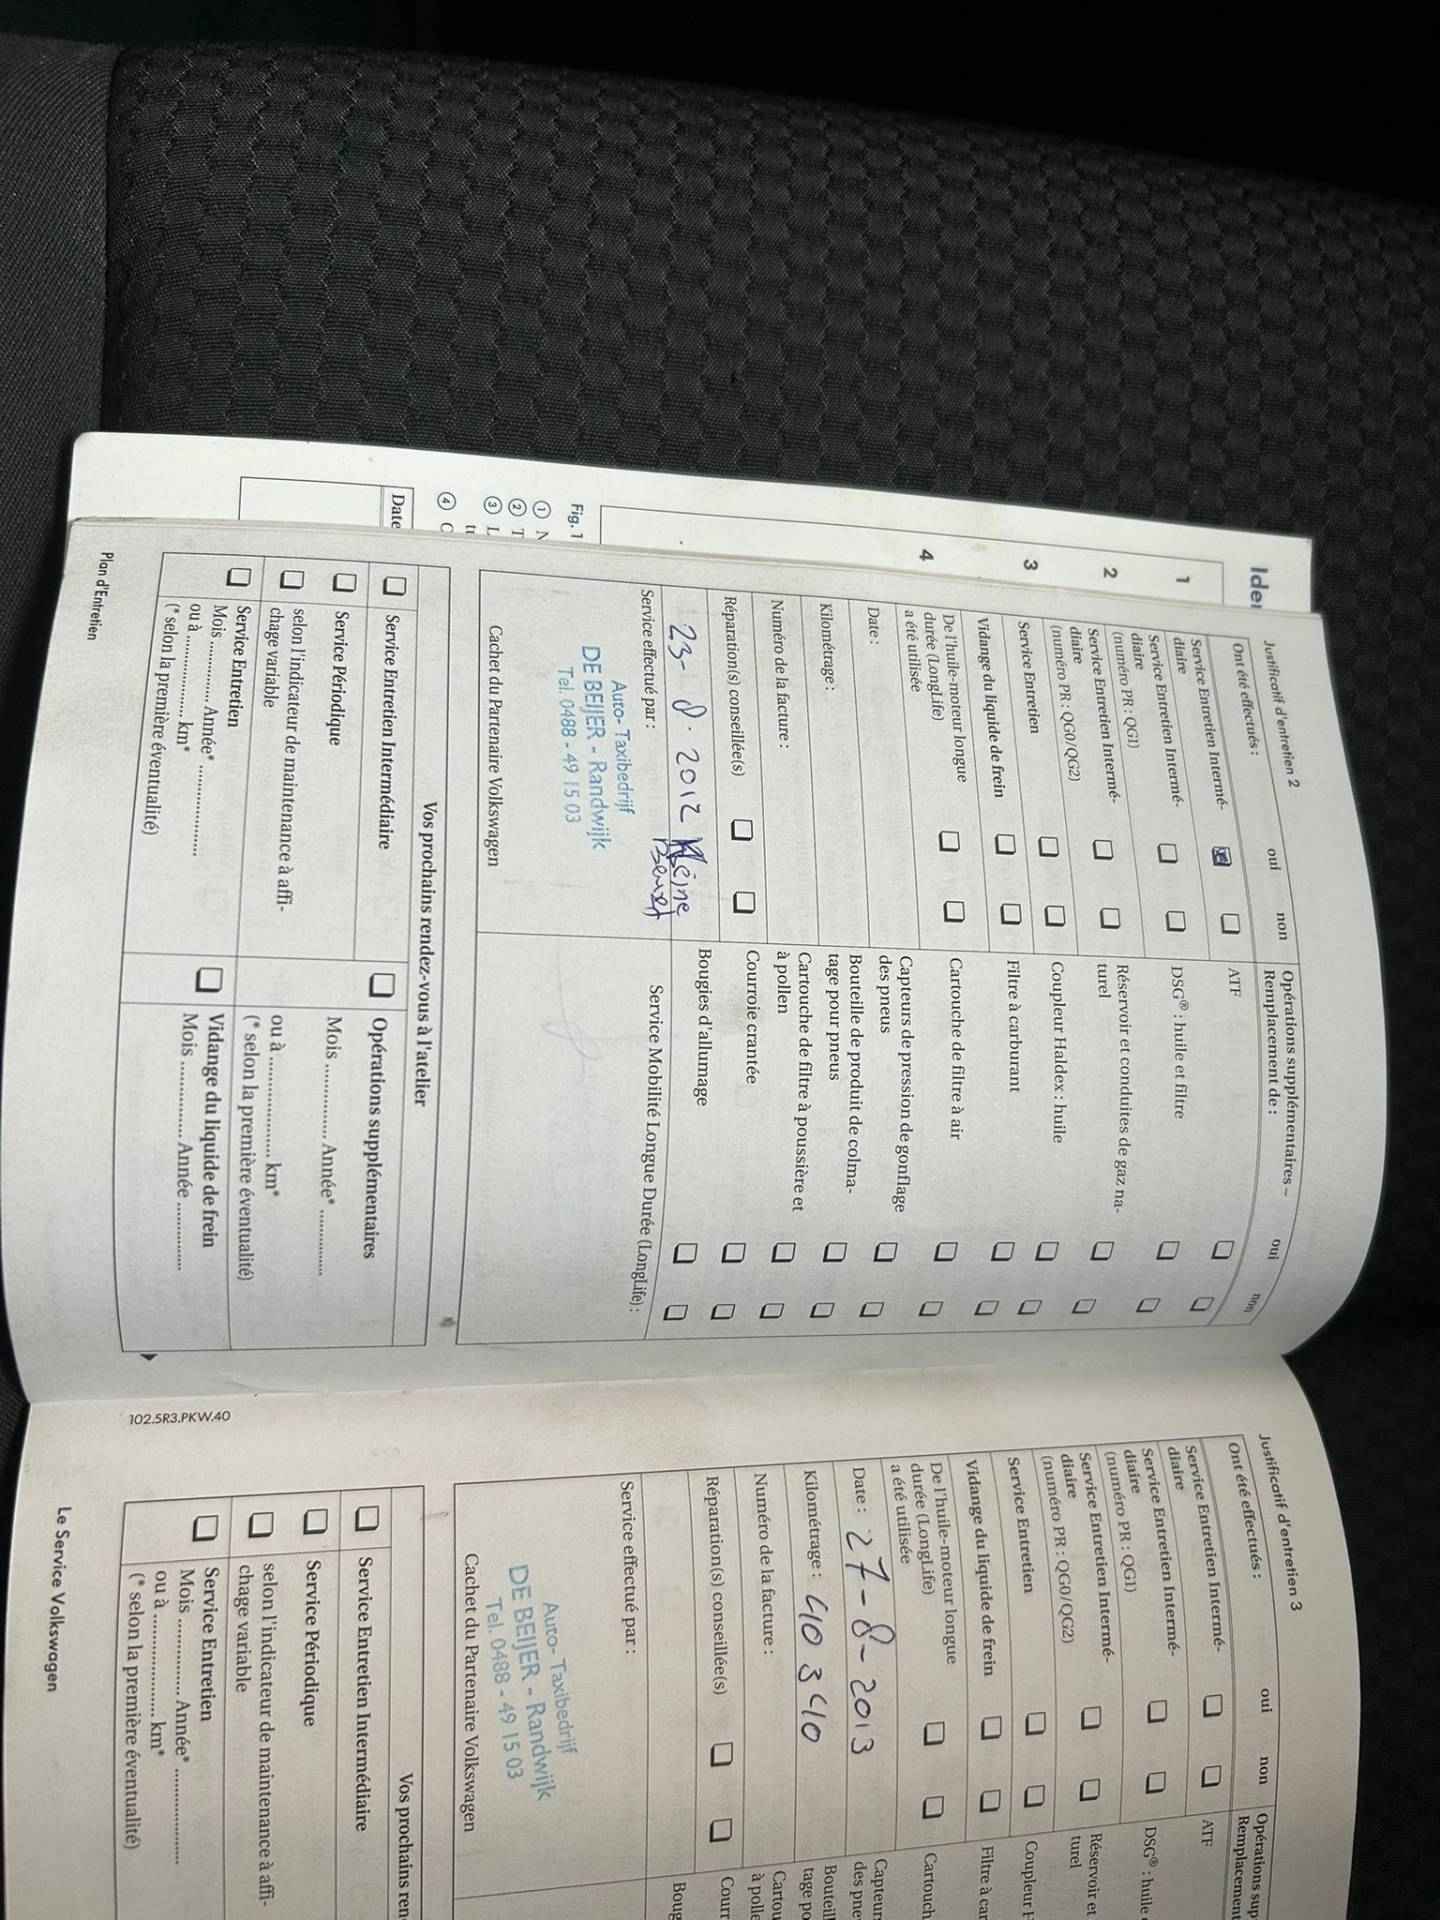 Ide
1
2
3
4
Fig. 1
① N
② T
③ L
④ C
Date
Justificatif d'entretien 2
Ont été effectués :
oui
non
Opérations supplémentaires –
Remplacement de :
oui
non
Service Entretien Intermé-
diaire
Service Entretien Intermé-
diaire
(numéro PR : QG1)
Service Entretien Intermé-
diaire
(numéro PR : QG0/QG2)
Service Entretien
Vidange du liquide de frein
De l'huile-moteur longue
durée (LongLife)
a été utilisée
Date :
Kilométrage :
Numéro de la facture :
Réparation(s) conseillée(s)
23-8-2012 Kleine
Beurt
Service effectué par :
Auto-Taxibedrijf
DE BEIJER - Randwijk
Tel. 0488 - 49 15 03
Cachet du Partenaire Volkswagen
ATF
DSG® : huile et filtre
Réservoir et conduites de gaz na-
turel
Coupleur Haldex : huile
Filtre à carburant
Cartouche de filtre à air
Capteurs de pression de gonflage
des pneus
Bouteille de produit de colma-
tage pour pneus
Cartouche de filtre à poussière et
à pollen
Courroie crantée
Bougies d'allumage
Service Mobilité Longue Durée (LongLife) :
Vos prochains rendez-vous à l'atelier
Service Entretien Intermédiaire
Service Périodique
selon l'indicateur de maintenance à affi-
chage variable
Service Entretien
Mois ............... Année* ....................
ou à .................... km*
(* selon la première éventualité)
Opérations supplémentaires
Mois ............... Année* ...............
ou à .................... km*
(* selon la première éventualité)
Vidange du liquide de frein
Mois ............... Année ...............
Plan d'Entretien
102.5R3.PKW.40
Justificatif d'entretien 3
Ont été effectués :
oui
non
Opérations sup
Remplacement
Service Entretien Intermé-
diaire
Service Entretien Intermé-
diaire
(numéro PR : QG1)
Service Entretien Intermé-
diaire
(numéro PR : QG0/QG2)
Service Entretien
Vidange du liquide de frein
De l'huile-moteur longue
durée (LongLife)
a été utilisée
Date : 27-8-2013
Kilométrage : 40340
Numéro de la facture :
Réparation(s) conseillée(s)
Service effectué par :
Auto-Taxibedrijf
DE BEIJER - Randwijk
Tel. 0488 - 49 15 03
Cachet du Partenaire Volkswagen
ATF
DSG® : huile
Réservoir et
turel
Coupleur H
Filtre à car
Cartouch
Capteur
des pne
Bouteil
tage po
Cartou
à polle
Courr
Boug
Vos prochains ren
Service Entretien Intermédiaire
Service Périodique
selon l'indicateur de maintenance à affi-
chage variable
Service Entretien
Mois ............... Année* ....................
ou à .................... km*
(* selon la première éventualité)
Le Service Volkswagen